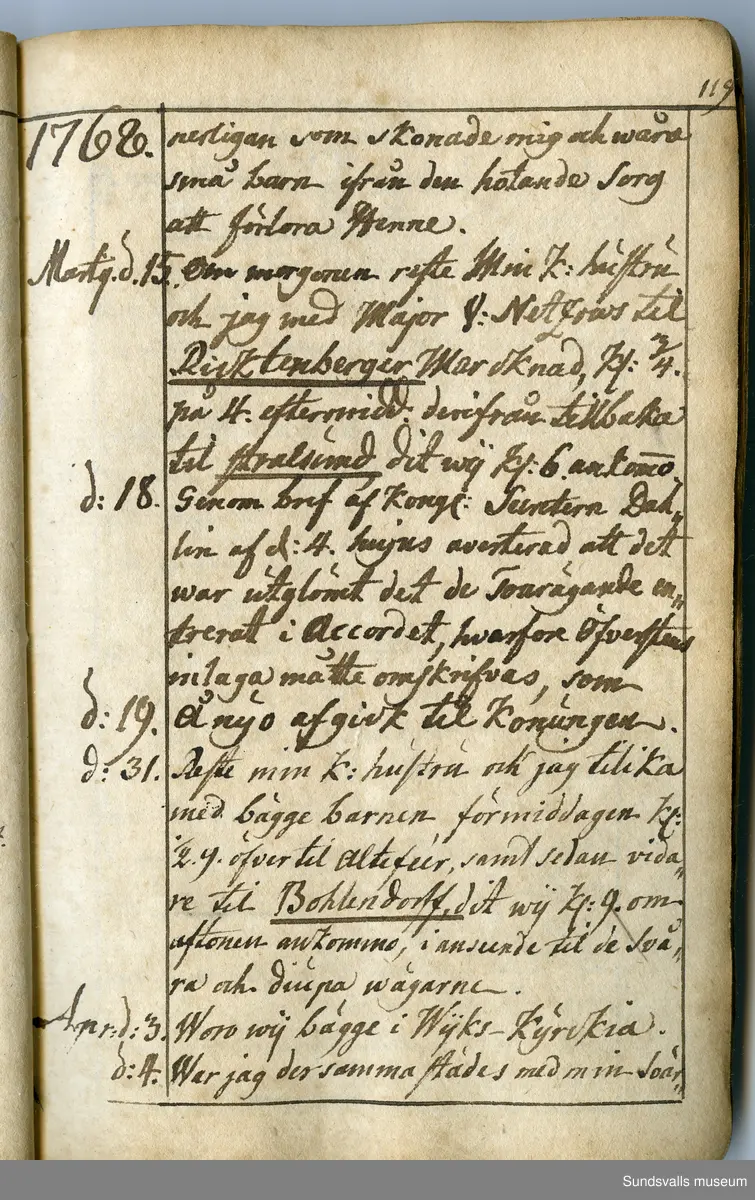 119
1768. nerligan som skonade mig och wåra
små barn ifrån den hotande Sorg
att förlora Henne.
Martij. d. 15. Om morgonen reste Min K: hustru
och jag med Major V: Netzows til
Ricktenberger Marcknad, Kl: 3/4.
på 4. eftermidd: derifrån tillbaka
til Stralsund dit wÿ Kl: 6. ankom̄o.
d: 18. Genom bref af Kongl: Dah„
lin af d: 4. hujus averterad att det
war utglömt det de Swarägande en„
trerat i Accordet, hvarföre Öfverstens
inlaga måtte omskrifvas, som
d: 19. Å nÿo afgick til Konungen.
d: 31. Reste min K: hustru och jag tilika
med bägge barnen förmiddagen Kl:
1/2. 9. öfver til Altefeir, samt sedan vida„
re til Bohlendorff, dit wÿ Kl: 9. om
aftonen ankommo, i anseende til de Svå„
ra och diupa wägarne.
Apr: d: 3. Woro wÿ bägge i Wÿks-Kÿrckia.
d: 4. War jag dersammastädes med min Svär„
Sundsvalls museum